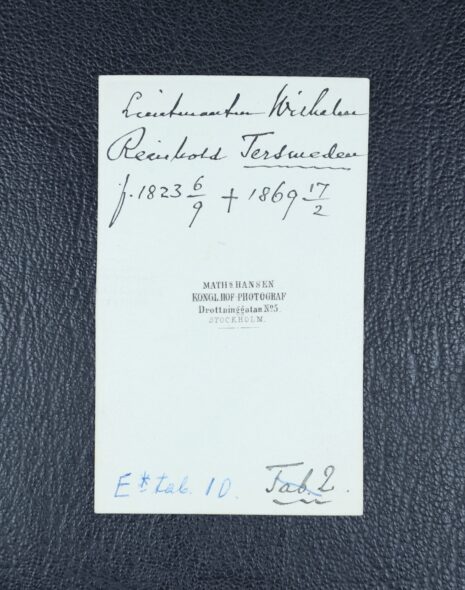 Lieutnanten Wilhelm
Reinhold Tersmeden
f. 1823 6/9 + 1869 17/2
MATHS HANSEN
KONGL. HOF-PHOTOGRAF
Drottninggatan No 5.
STOCKHOLM.
E* tab. 10. Tab. 2.